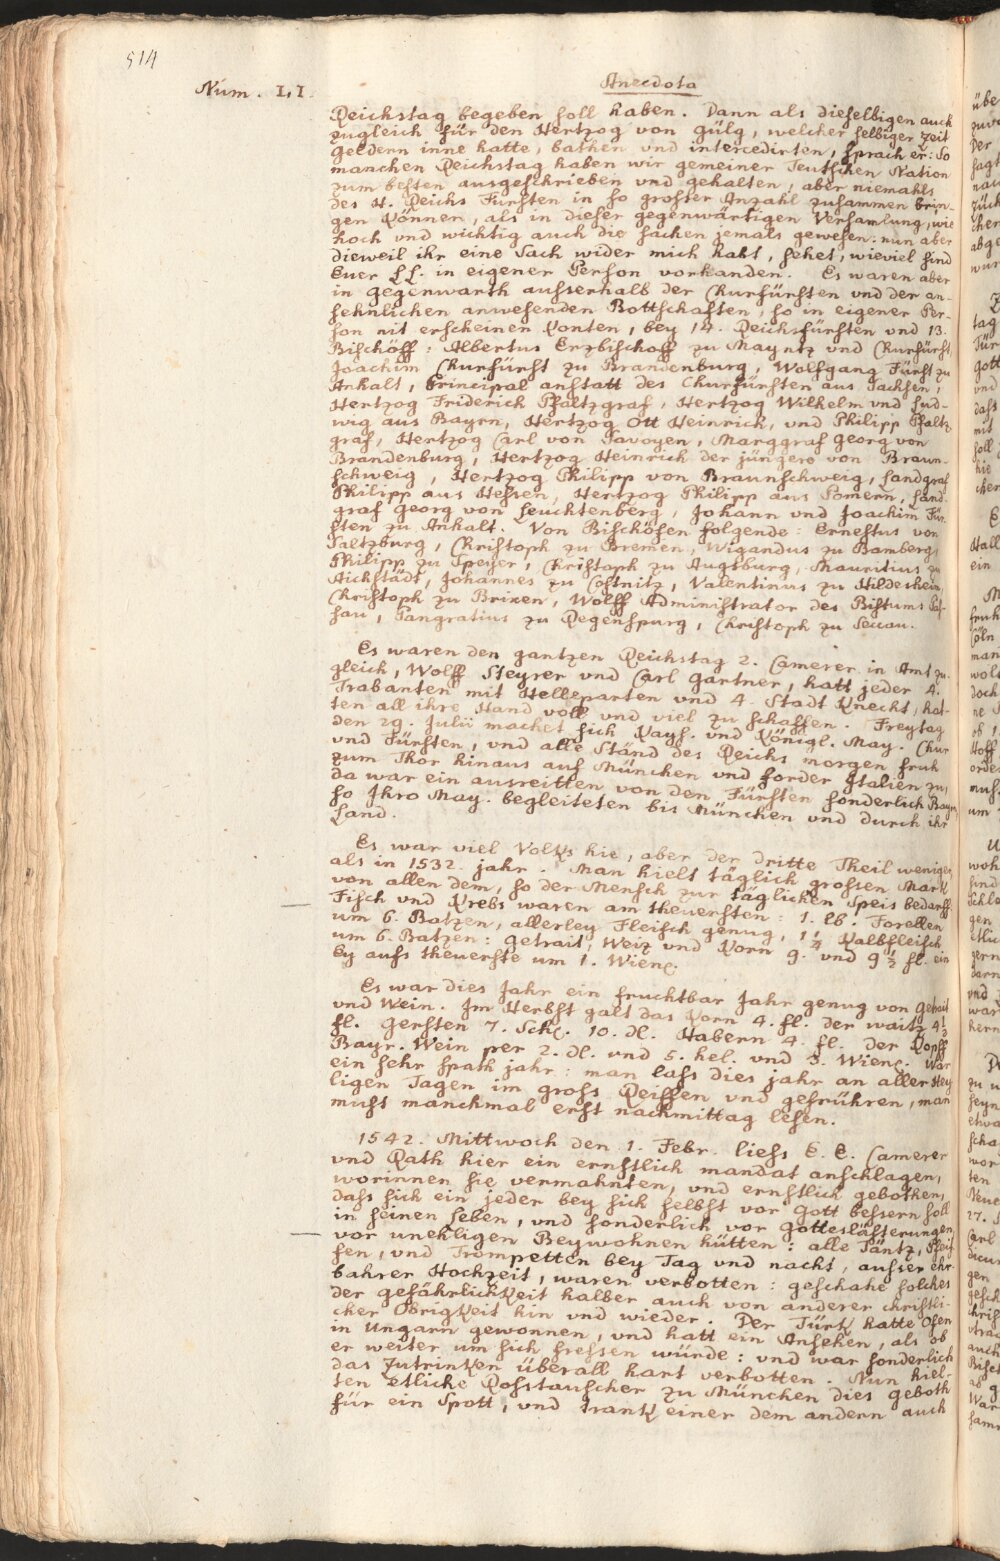 514
Num. LI.
Anecdota
Reichstag begeben soll haben. Dann als dieselbigen auch
zugleich für den Hertzog von Gülg, welcher selbiger Zeit
Geldern inne hatte, bathen vnd intercedirten, sprach er: So
manchen Reichstag haben wir gemeiner Teutschen Nation
zum besten ausgeschrieben vnd gehalten, aber niemahls
des H. Reichs Fürsten in so grosser Anzahl zusammen brin-
gen können, als in dieser gegenwärtigen Versamlung, wie
hoch vnd wichtig auch die sachen jemals gewesen: nun aber
dieweil ihr eine Sach wider mich habt, sehet, wieviel sind
Euer LL. in eigener Person vorhanden. Es waren aber
in Gegenwarth ausserhalb der Churfürsten vnd der an-
sehnlichen anwesenden Bottschafften, so in eigener Per-
son nit erscheinen konten, bey 14. Reichsfürsten vnd 13.
Bischöff: Albertus Erzbischoff zu Mayntz vnd Churfürst
Joachim Churfürst zu Brandenburg, Wolfgang Fürst zu
Anhalt, Principal anstatt des Churfürsten aus Sachsen,
Hertzog Friderich Pfaltzgraf, Hertzog Wilhelm vnd Lud-
wig aus Bayrn, Hertzog Ott Heinrich, vnd Philipp Pfaltz-
graf, Hertzog Carl von Savoyen, Marggraf Georg von
Brandenburg, Hertzog Heinrich der jüngere von Braun-
schweig, Hertzog Philipp von Braunschweig, Landgraf
Philipp aus Hessen, Hertzog Philipp aus Pomern, Land-
graf Georg von Leuchtenberg, Johann vnd Joachim Für-
sten zu Anhalt. Von Bischöfen folgende: Ernestus von
Saltzburg, Christoph zu Bremen, Wigandus zu Bamberg,
Philipp zu Speyer, Christoph zu Augsburg, Mauritius zu
Aichstädt, Johannes zu Costnitz, Valentinus zu Hildesheim,
Christoph zu Brixen, Wolff Administrator des Bistums Pas-
sau, Pangratius zu Regenspurg, Christoph zu Seccau.
Es waren den gantzen Reichstag 2. Camerer in Amt zu-
gleich, Wolff Steyrer vnd Carl Gartner, hatt jeder 4.
Trabanten mit Helleparten vnd 4. Stadt Knecht, hat-
ten all ihre Hand voll vnd viel zu schaffen. Freytag
den 29. Julii machet sich Kays. vnd Königl. May. Chur
vnd Fürsten, vnd alle Ständ des Reichs morgen fruh
zum Thor hinaus auf München vnd forder Italien zu,
da war ein ausreitten von den Fürsten sonderlich Bayrn,
so Ihro May. begleiteten bis München vnd durch ihr
Land.
Es war viel Volks hie, aber der dritte Theil weniger
als in 1532. jahr. Man hielt täglich grossen Mark
von allen dem, so der Mensch zur täglichen Speis bedarff
Fisch vnd Krebs waren am theuersten: 1. lb. Forellen
um 6. Batzen, allerley Fleisch genug, 1 1/4 Kalbfleisch
um 6. Batzen: getrait, Weiz vnd Korn 9. vnd 9 1/2 fl. ein
by aufs theuerste um 1. Wienę.
Es war dies Jahr ein fruchtbar Jahr genug von Getrait
vnd Wein. Im Herbst galt das Korn 4. fl. der waitz 4 1/2
fl. Gersten 7. Sch. 10. dl. Habern 4. fl. der Kopff
Bayr. Wein per 2. dl. vnd 5. hel. vnd 3. Wienę. War
ein sehr spath jahr: man lass dies jahr an aller Hey-
ligen Tagen im gross Reiffen vnd gefrühren, man
must manchmal erst nachmittag lesen.
1542. Mittwoch den 1. Febr. liess E. E. Camerer
vnd Rath hier ein ernstlich mandat anschlagen,
worinnen sie vermahnten, vnd ernstlich gebothen,
dass sich ein jeder bey sich selbst vor Gott bessern soll
in seinen Leben, vnd sonderlich vor Gotteslästerungen,
vor unehligen Beywohnen hütten: alle Täntz, Pfeif-
fen, vnd Trompetten bey Tag vnd nacht, ausser ehr-
bahrer Hochzeit, waren verbotten: geschahe solches
der gefährlichkeit halber auch von anderer christli-
cher Obrigkeit hin vnd wieder. Der Türk hatte Ofen
in Ungarn gewonnen, vnd hatt ein Ansehen, als ob
er weiter um sich fressen würde: vnd war sonderlich
das Zutrinken überall hart verbotten. Nun hiel-
ten etliche Rosstauscher zu München dies geboth
für ein Spott, vnd trank einer dem andern auch